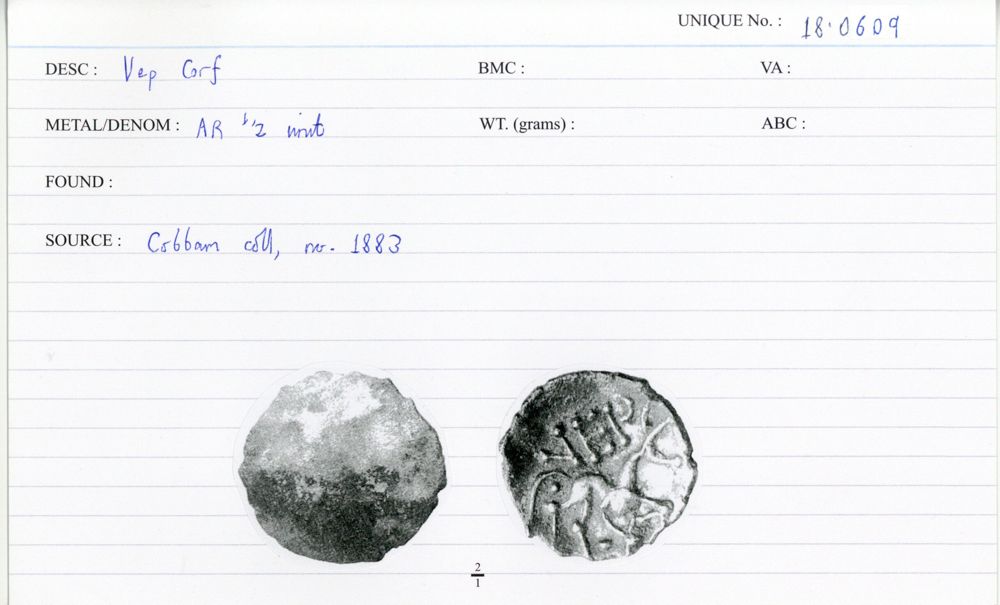 UNIQUE No. : 18·0609
DESC : Vep Corf BMC : VA :
METAL/DENOM : AR 1/2 unit WT. (grams) : ABC :
FOUND :
SOURCE : Cobbam coll, no. 1883
2
1